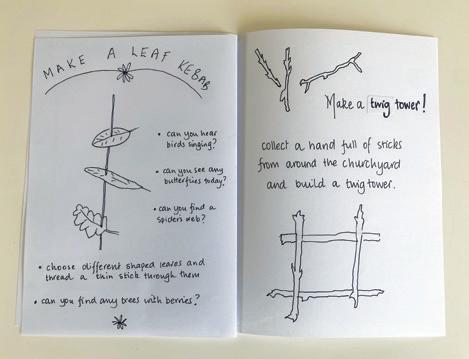 MAKE A LEAF KEBAB
• can you hear
birds singing?
• can you see any
butterflies today?
• can you find a
spiders web?
• choose different shaped leaves and
thread a thin stick through them
• can you find any trees with berries?
Make a twig tower!
collect a hand full of sticks
from around the churchyard
and build a twig tower.